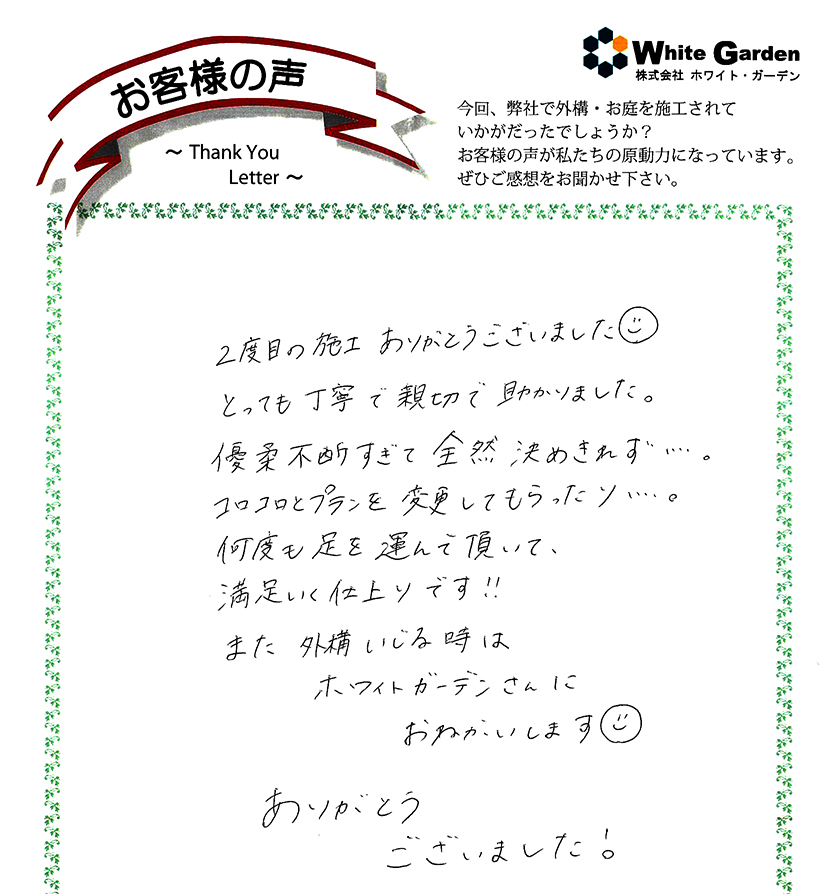 お客様の声
～ Thank You
Letter ～
White Garden
株式会社 ホワイト・ガーデン
今回、弊社で外構・お庭を施工されて
いかがだったでしょうか？
お客様の声が私たちの原動力になっています。
ぜひご感想をお聞かせ下さい。
2度目の施工 ありがとうございました
とっても丁寧で親切で助かりました。
優柔不断すぎて全然決めきれず…。
コロコロとプランを変更してもらったり…。
何度も足を運んで頂いて、
満足いく仕上りです!!
また 外構いじる時は
ホワイトガーデンさんに
おねがいします
ありがとう
ございました!